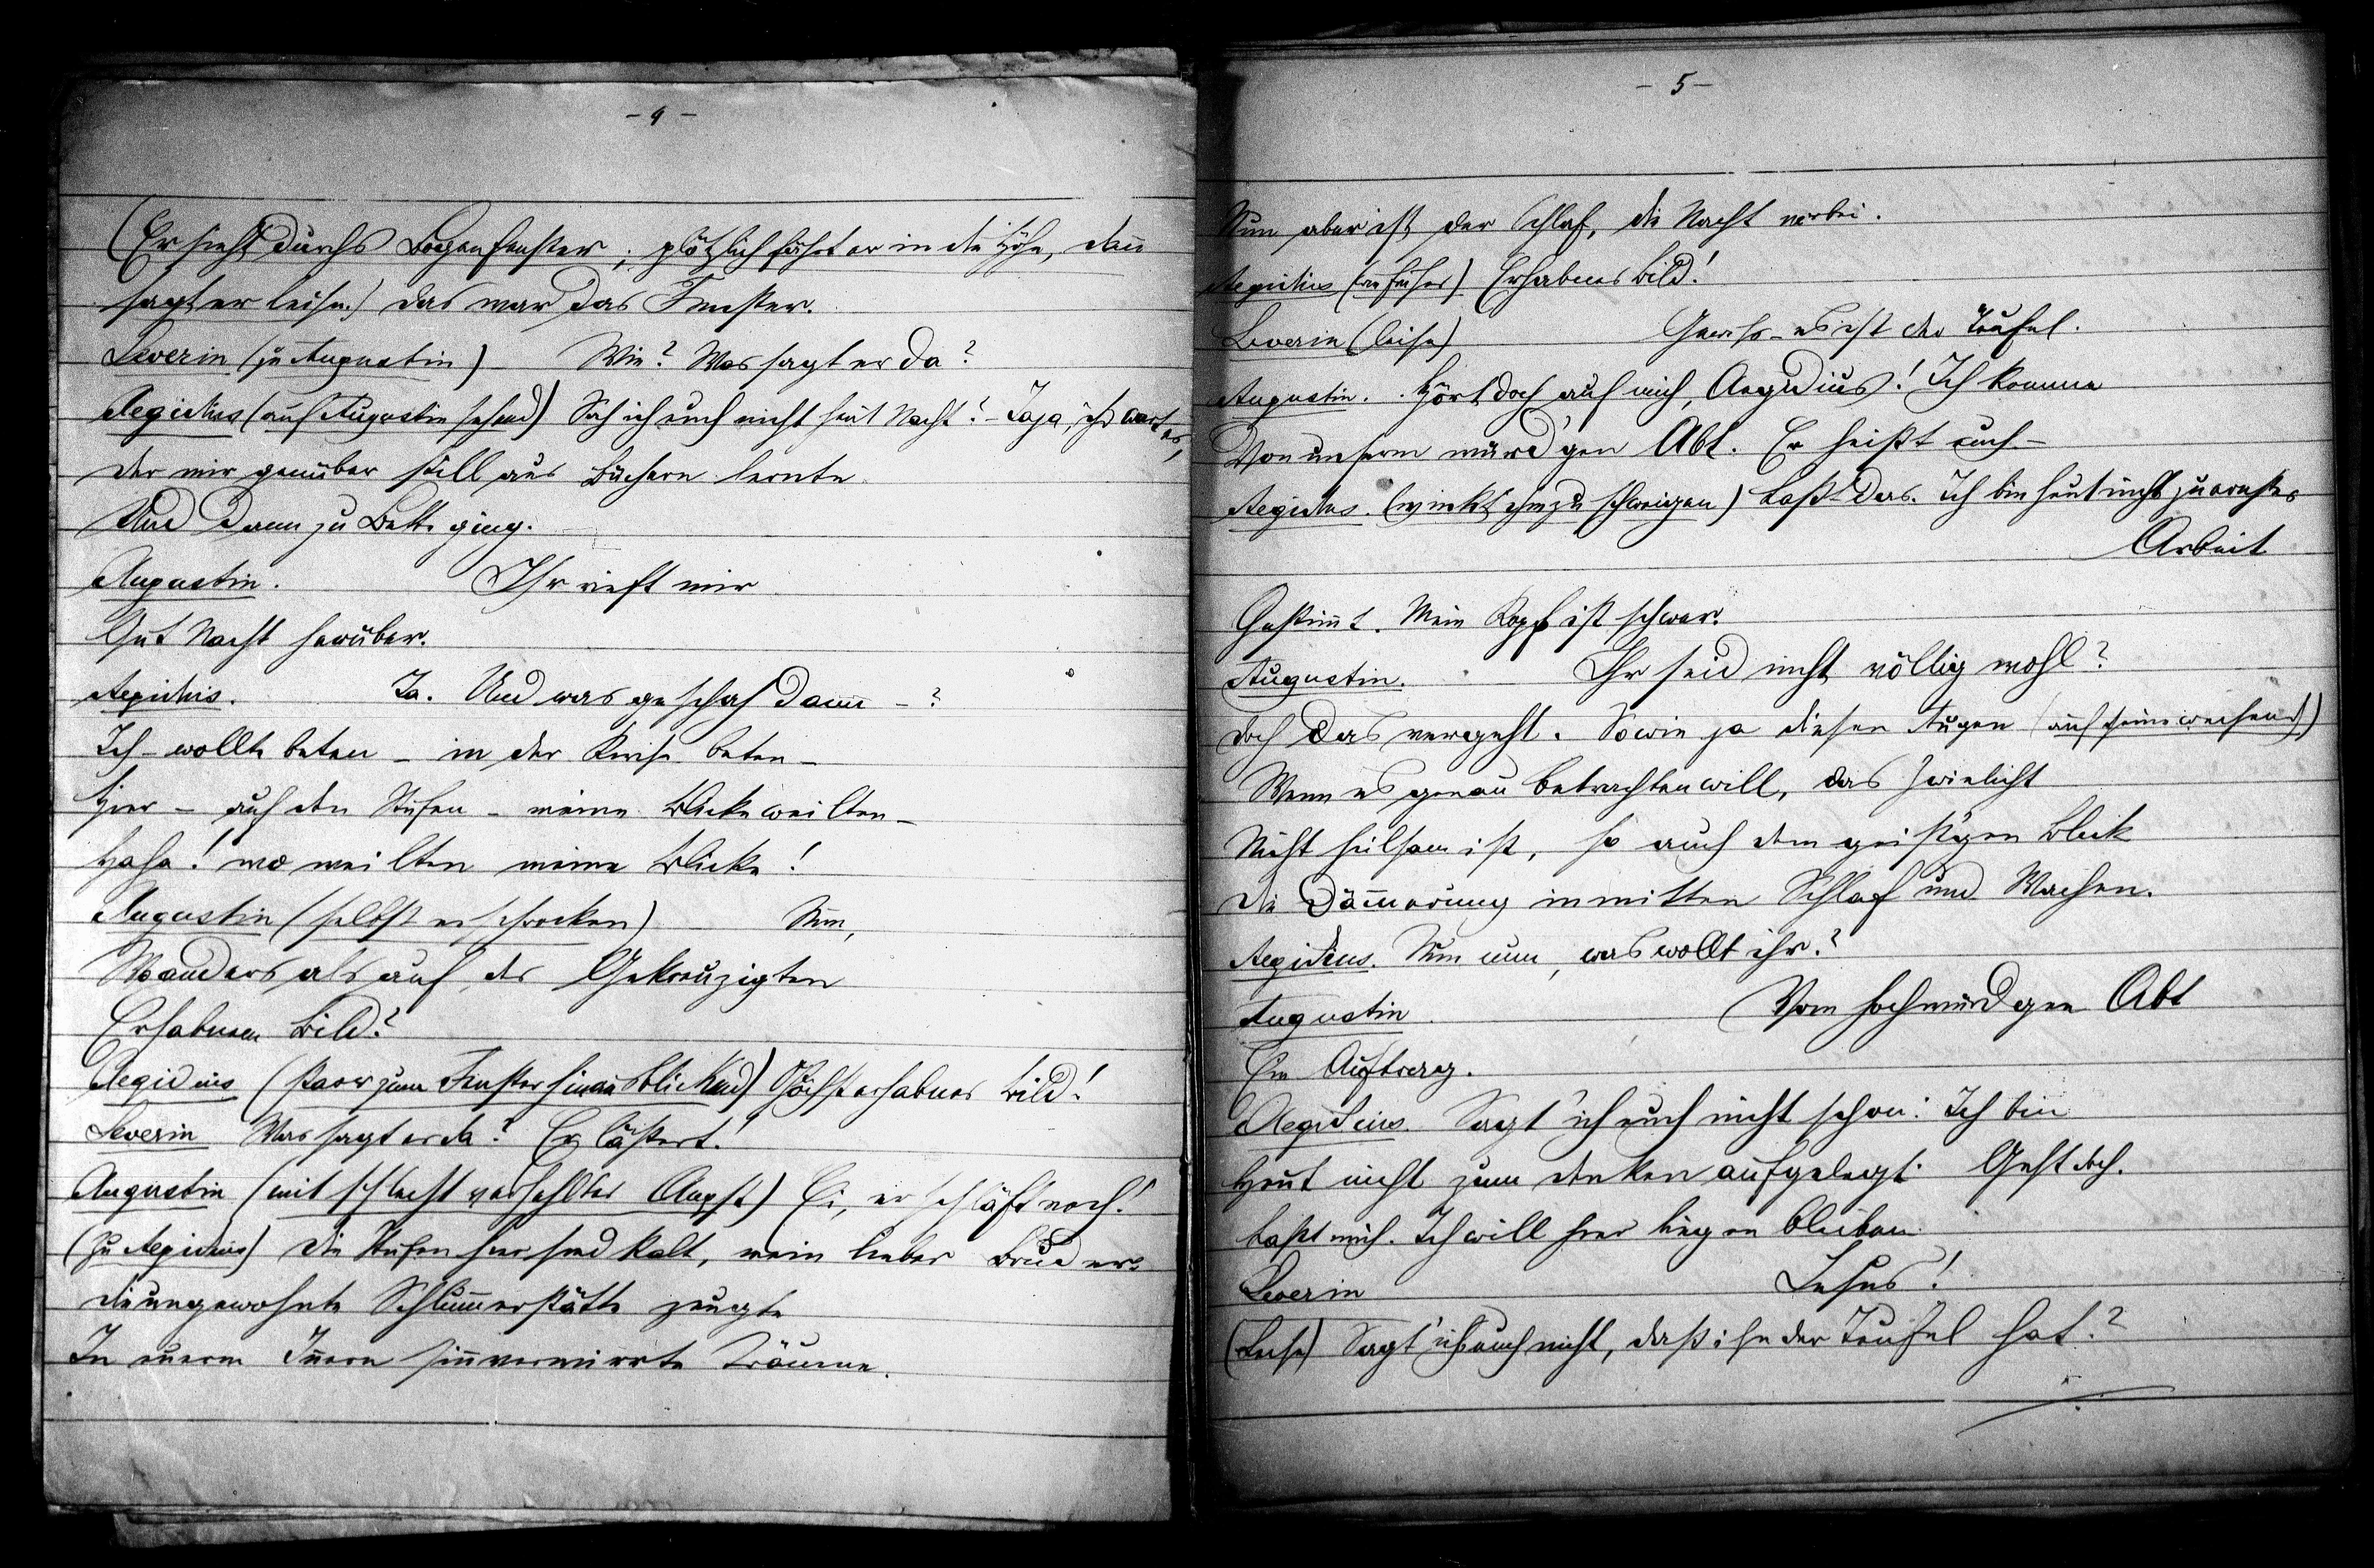 - 4 -
(Er sieht durchs Bogenfenster; plötzlich fährt er in die Höhe, dann
sagt er leise.) das war das Fenster.
Severin (zu Augustin) Wie? Was sagt er da?
Aegidius (auf Augustin sehend) Sah ich euch nicht heut Nacht? - Jaja, ihr wart es,
der mir genüber still aus Büchern lernte
Und dann zu Bette ging.
Augustin. Ihr rieft mir
Gut Nacht herüber.
Aegidius. Ja. Und was geschah dann - ?
Ich - wollte beten - in der Kirche beten -
Hier - auf den Stufen - meine Blicke weilten -
Haha! wo weilten meine Blicke!
Augustin (selbst erschrocken) Nun,
Woanders als auf des Gekreuzigten
Erhabnem Bild?
Aegidius (starr zum Fenster hinausblickend) Höchst erhabnes Bild!
Severin Was sagt er da? Er lästert!
Augustin (mit schlecht verhehlter Angst) Ei, er schläft noch!
(zu Aegidius) die Stufen hier sind kalt, mein lieber Bruder:
die ungewohnte Schlummerstätte zeugte
In euerm Innern sinnverwirrte Träume.
- 5 -
Nun aber ist der Schlaf, die Nacht vorbei.
Aegidius (wie früher) Erhabenes Bild!
Severin (leise) Gewiss - es ist der Teufel.
Augustin. Hört doch auf mich, Aegidius! Ich komme
Von unserm würd'gen Abt. Er heißt euch -
Aegidius. (winkt ihm zu schweigen) Laßt das. Ich bin heut nicht zu ernster
Arbeit
Gestimmt. Mein Kopf ist schwer.
Augustin. Ihr seid nicht völlig wohl?
doch das vergeht. Sowie ja diesen Augen (auf seine weisend)
Wenn es genau betrachten will, das Zwielicht
Nicht heilsam ist, so auch dem geist'gen Blick
die Dämmerung inmitten Schlaf und Wachen.
Aegidius. Nun nun, was wollt ihr?
Augustin Vom hochwürdgen Abt
Ein Auftrag.
Aegidius. Sagt' ich euch nicht schon: Ich bin
Heut nicht zum denken aufgelegt. Geht doch.
Laßt mich. Ich will hier liegen bleiben.
Severin Jesus!
(Leise) Sagt' ich euch nicht, daß ihn der Teufel hat?